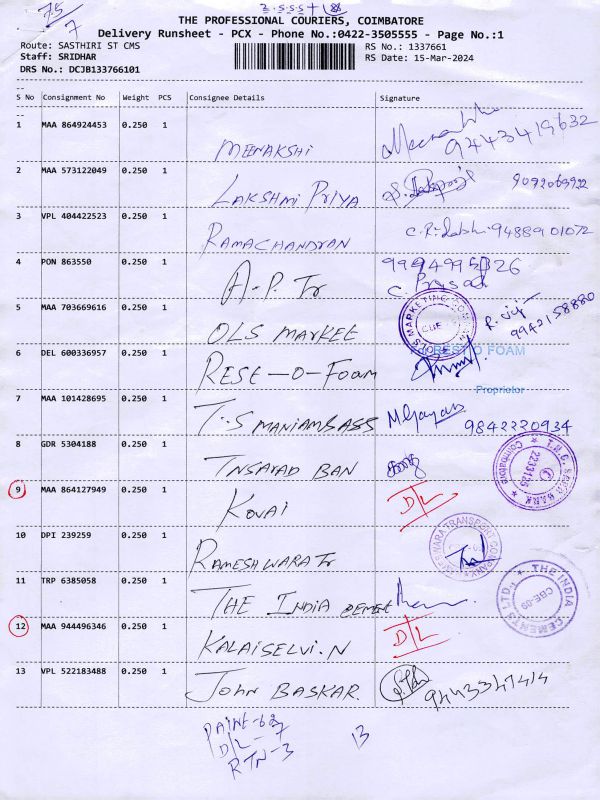 75/7
THE PROFESSIONAL COURIERS, COIMBATORE
Delivery Runsheet - PCX - Phone No.:0422-3505555 - Page No.:1
Route: SASTHIRI ST CMS
RS No.: 1337661
Staff: SRIDHAR
RS Date: 15-Mar-2024
DRS No.: DCJB133766101
S No Consignment No Weight PCS Consignee Details Signature
1 MAA 864924453 0.250 1 MEENAKSHI 9443419632
2 MAA 573122049 0.250 1 LAKSHMI PRIYA 9092069922
3 VPL 404422523 0.250 1 RAMACHANDRAN 9488901072
4 PON 863550 0.250 1 A.P. Tr C. Prasad
5 MAA 703669616 0.250 1 OLS MARKET 9942158880
6 DEL 600336957 0.250 1 REST-O-FOAM
REST O FOAM
Proprietor
7 MAA 101428695 0.250 1 T.S MANIAMBASS 9842220934
8 GDR 5304188 0.250 1 TNSAPAD BAN
9 MAA 864127949 0.250 1 KOVAI D/L
10 DPI 239259 0.250 1 RAMESHWARA Tr
11 TRP 6385058 0.250 1 THE INDIA CEMENT
THE INDIA CEMENTS LTD. CBE-09
12 MAA 944496346 0.250 1 KALAISELVI.N D/L
13 VPL 522183488 0.250 1 JOHN BASKAR.
D/L - 7
RTN-3
13